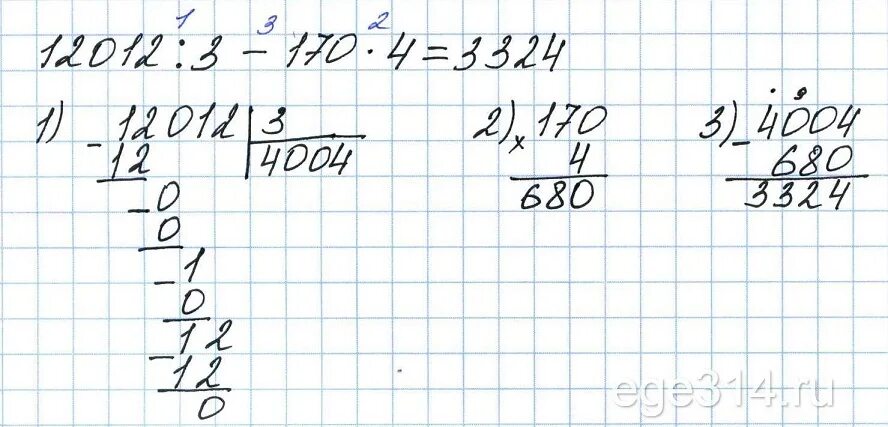 1 3 2
12012 : 3 − 170 · 4 = 3324
1) − 12012 | 3
12 4004
− 0
0
− 1
0
− 12
12
0
2) × 170
4
680
3) − 4004
680
3324
ege314.ru